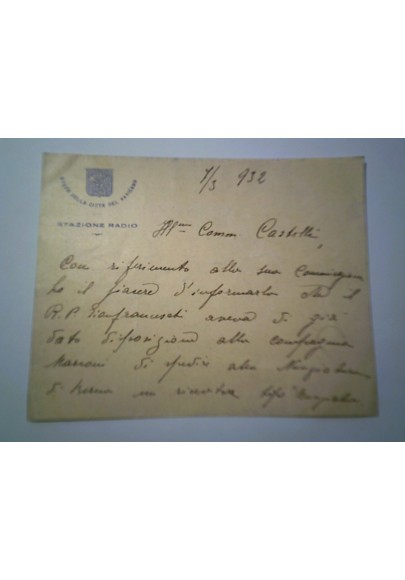 STATO DELLA CITTÀ DEL VATICANO
STAZIONE RADIO
7/3 932
Ill.mo Comm Castelli,
Con riferimento alla sua
ho il piacere d'informarla che il
R. P. Gianfranceschi aveva di già
dato disposizioni alla compagnia
Marconi di spedire alla Nunziatura
di un ricevitore tipo